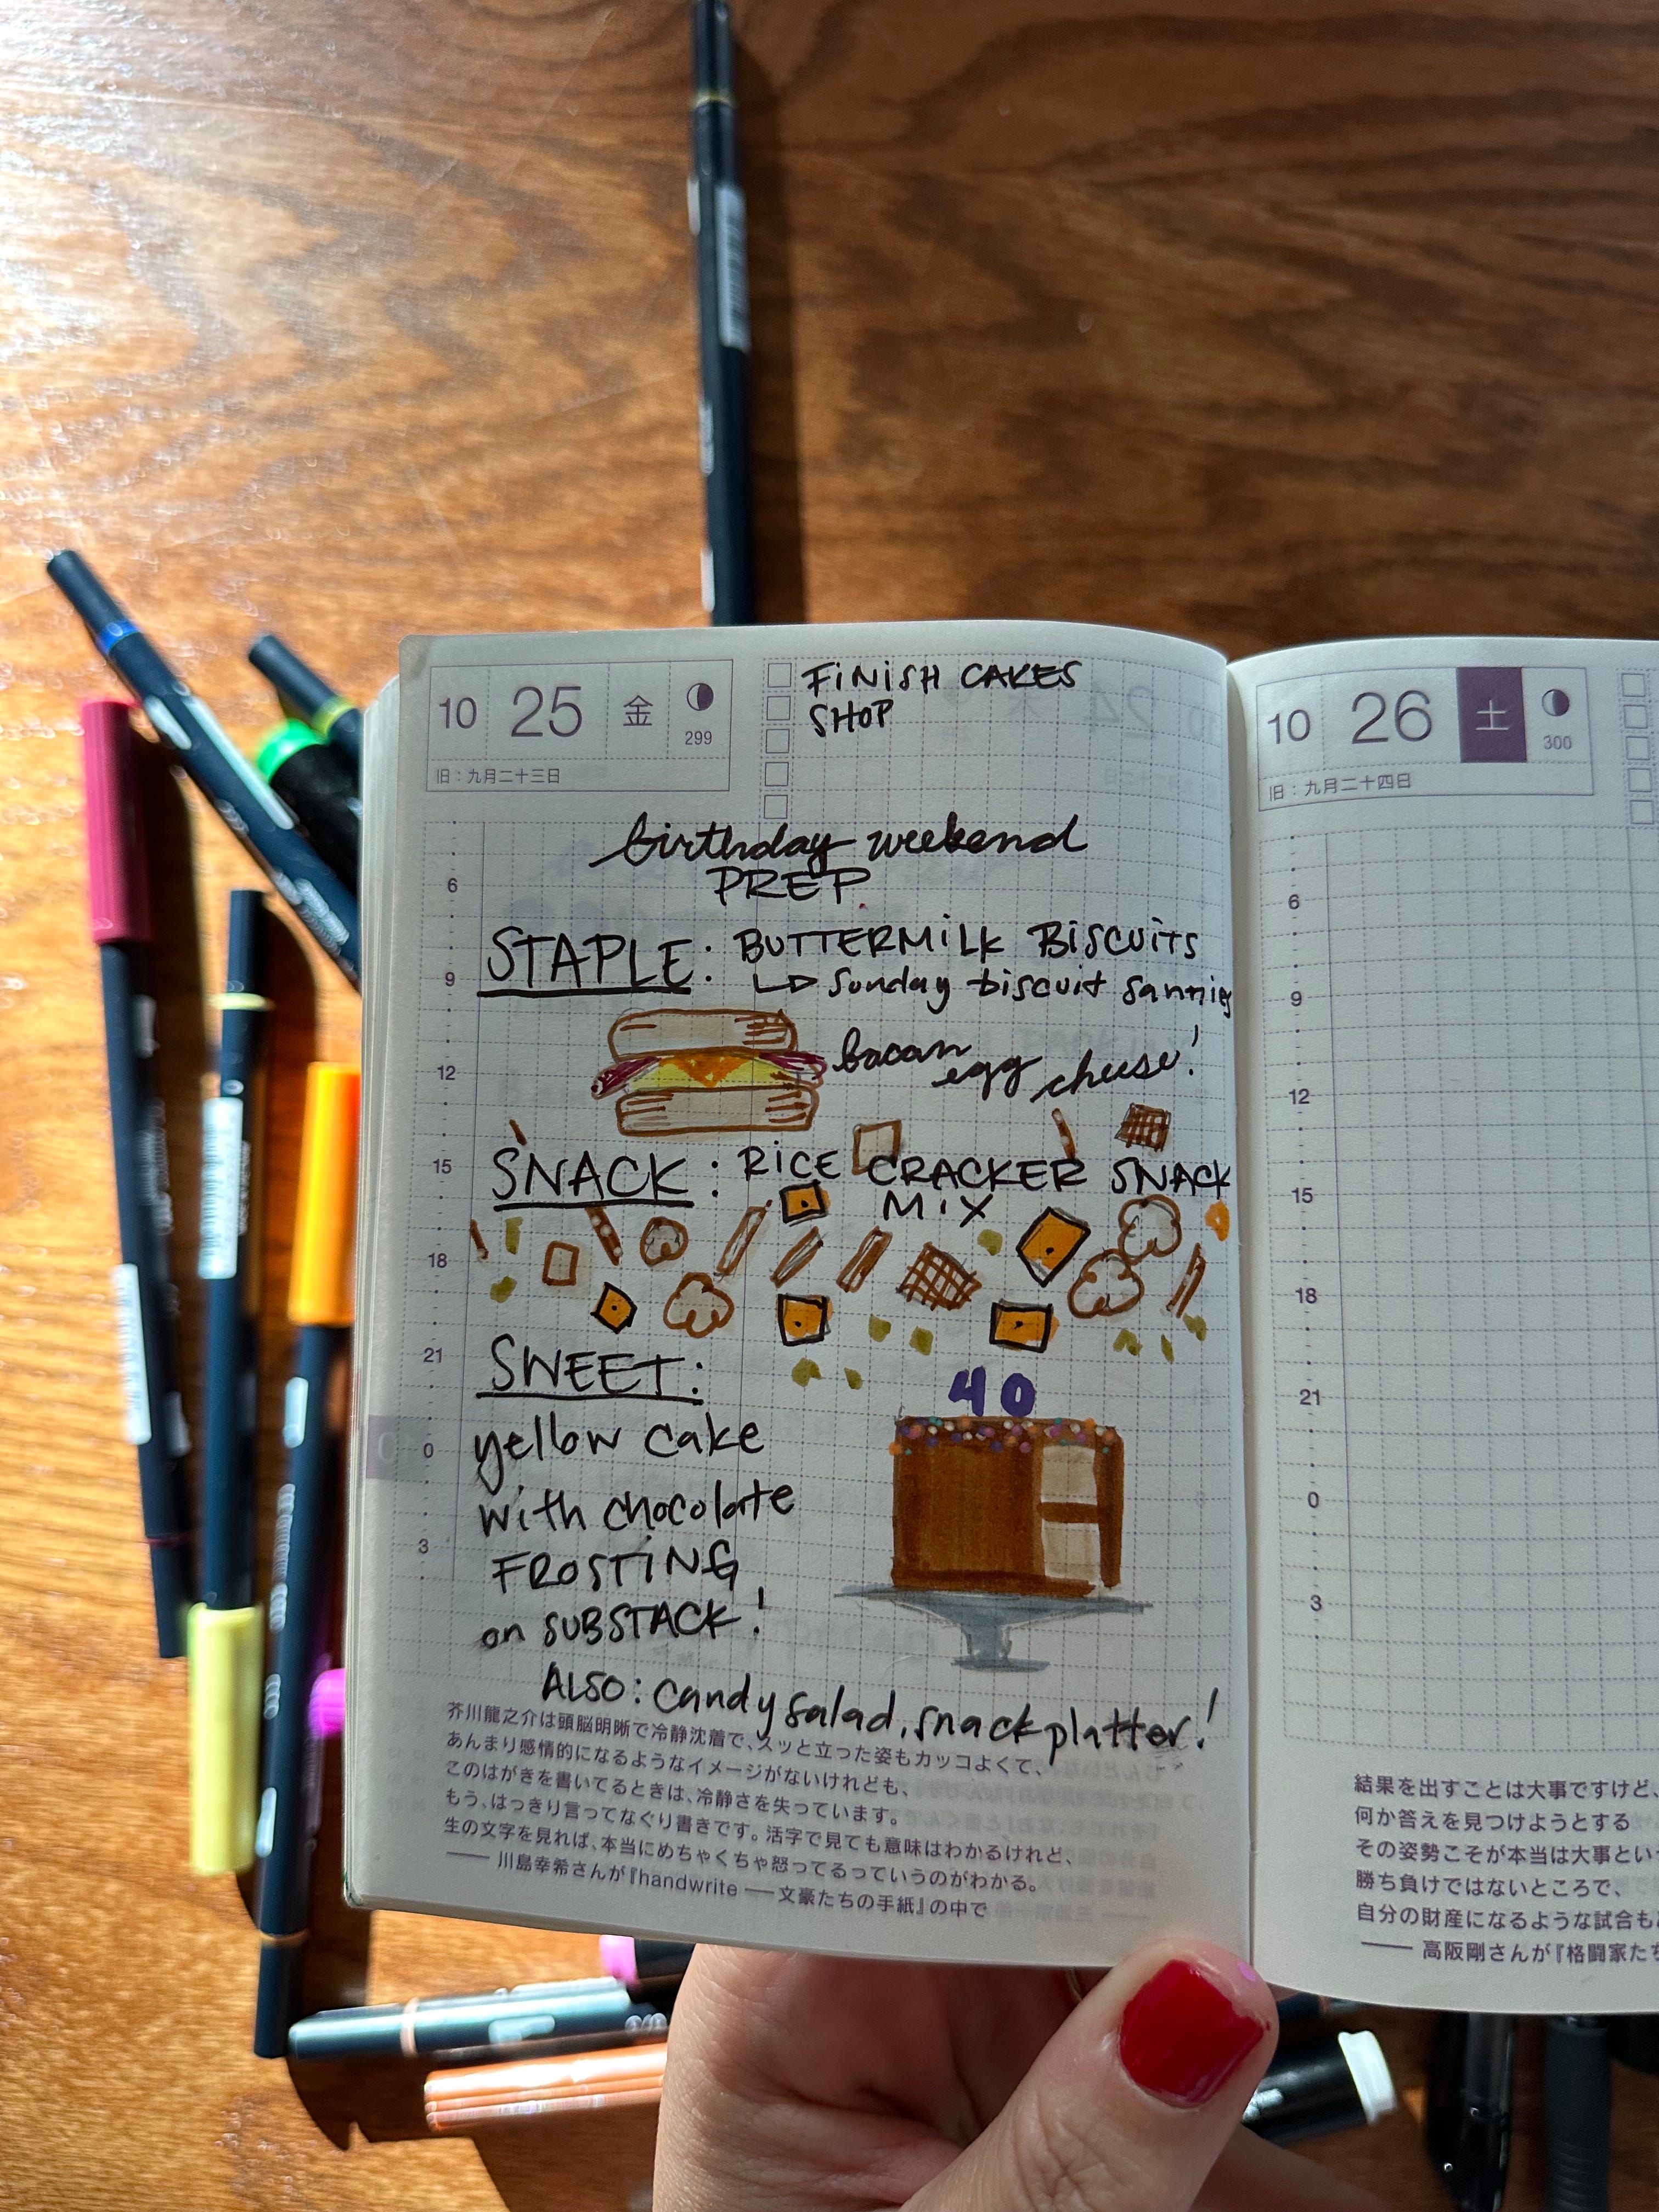 10 25 金
299
旧：九月二十三日
FINISH CAKES
SHOP
birthday weekend
PREP
STAPLE: BUTTERMILK BISCUITS
Sunday biscuit sannies
bacon egg cheese!
SNACK: RICE CRACKER SNACK
MIX
SWEET:
40
yellow cake
with chocolate
FROSTING
on SUBSTACK!
ALSO: candy salad, snack platter!
6
9
12
15
18
21
0
3
芥川龍之介は頭脳明晰で冷静沈着で、スッと立った姿もカッコよくて、
あんまり感情的になるようなイメージがないけれども、
このはがきを書いてるときは、冷静さを失っています。
もう、はっきり言ってなぐり書きです。活字で見ても意味はわかるけれど、
生の文字を見れば、本当にめちゃくちゃ怒ってるっていうのがわかる。
── 川島幸希さんが『handwrite ── 文豪たちの手紙』の中で
10 26 土
300
旧：九月二十四日
6
9
12
15
18
21
0
3
結果を出すことは大事ですけど、
何か答えを見つけようとする
その姿勢こそが本当は大事とい
勝ち負けではないところで、
自分の財産になるような試合も
── 高阪剛さんが『格闘家た